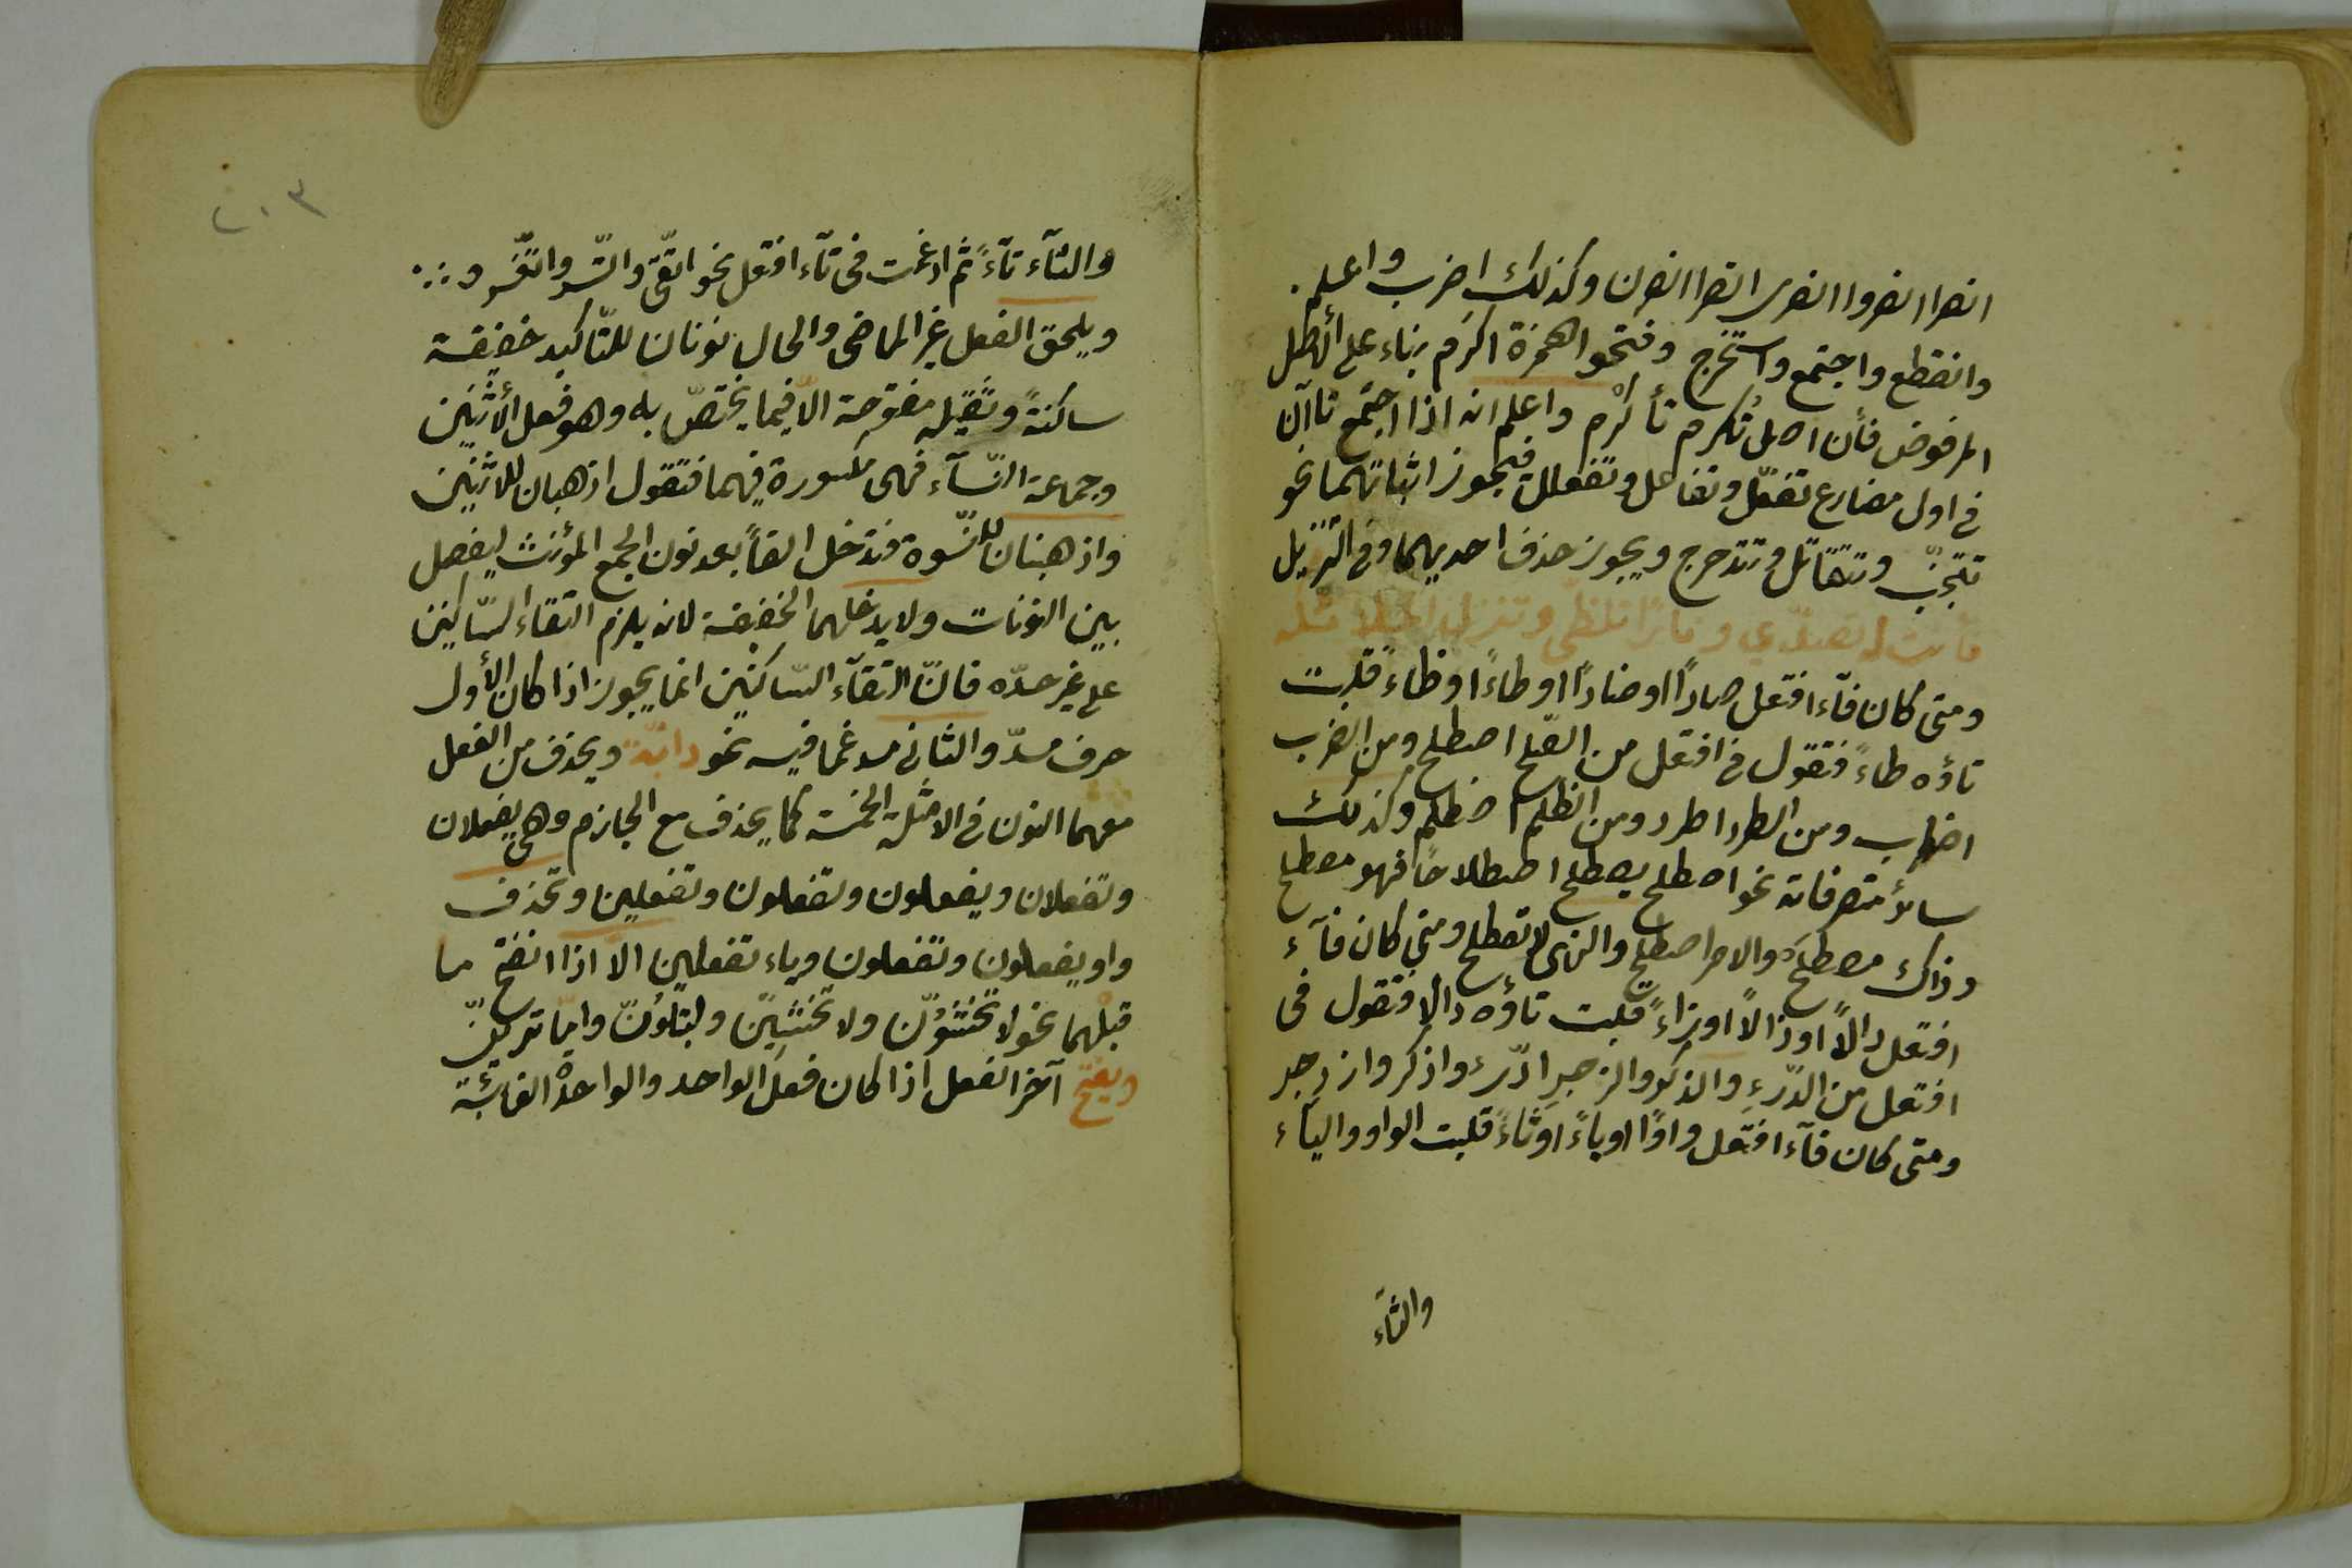 انصرا انصروا انصرى انصرا انصرن وكذلك اضرب واعلم.
وانقطع واجتمع واستخرج وفتحوا همزة اكرم بناء على الأصل
المرفوض فأن اصل تُكرم تأكرم واعلم انه اذا اجتمع تاآن
فى اول مضارع تفعّل وتفاعل وتفعلل فيجوز اثباتهما نحو
تتجنّب وتتقاتل وتتدحرج ويجوز حذف احديهما وفى التنزيل
فأنت له تصدّى ونارًا تلظّى وتنزل الملائكة
ومتى كان فآء افتعل صادًا او ضادًا او طاءً او ظاءً قلبت
تاؤه طاءً فتقول فى افتعل من الصّلح اصطلح ومن الضرب
اضطرب ومن الطرد اطرد ومن الظلم اضطلم وكذلك
سائر متصرفاته نحو اصطلح يصطلح اصطلاحًا فهو مصطلح
وذاك مصطلحَ والامر اصطلح والنهى لا تصطلح ومتى كان فآء
افتعل دالًا او ذالًا او زاءً قلبت تاؤه دالا فتقول فى
افتعل من الدّرءِ والذكر والزجرِ ادّرء واذكر وازدجر
ومتى كان فآء افتعل واوًا او ياءً او ثاءً قلبت الواو والياء
والثآء
٢٠٣
والثآء تآءً ثم ادغمت فى تآء افتعل نحو اتّقى واتّسر واتّغر و
ويلحق الفعل غير الماضى والحال نونان للتّاكيد خفيفة
ساكنةً وثقيلة مفتوحة الّا فيما يختصّ به وهو فعل الأثنين
وجماعة النّسآء فهى مكسورة فيهما فتقول اذهبان للاثنين
واذهبنان للنّسوة فتدخل الفاً بعد نون الجمع المؤنث ليفصل
بين النونات ولا يدخلهما الخفيفة لانه يلزم التقاء السّاكنين
على غير حدّه فانّ التقآء السّاكنين انما يجوز اذا كان الأول
حرف مدّ والثانى مدغما فيه نحو دابّة ويحذف من الفعل
معهما النون فى الامثلة الخمسة كما يحذف مع الجازم وهى يفعلان
وتفعلان ويفعلون وتفعلون وتفعلين وتحذف
واو يفعلون وتفعلون وياء تفعلين الّا اذا انفتح ما
قبلهما نحو لا تخشَوُنّ ولا تخشَيِنّ ولتبلَوُنّ وامّا ترَيِنّ
ويفتح آخر الفعل اذا كان فعل الواحد والواحدة الغائبة